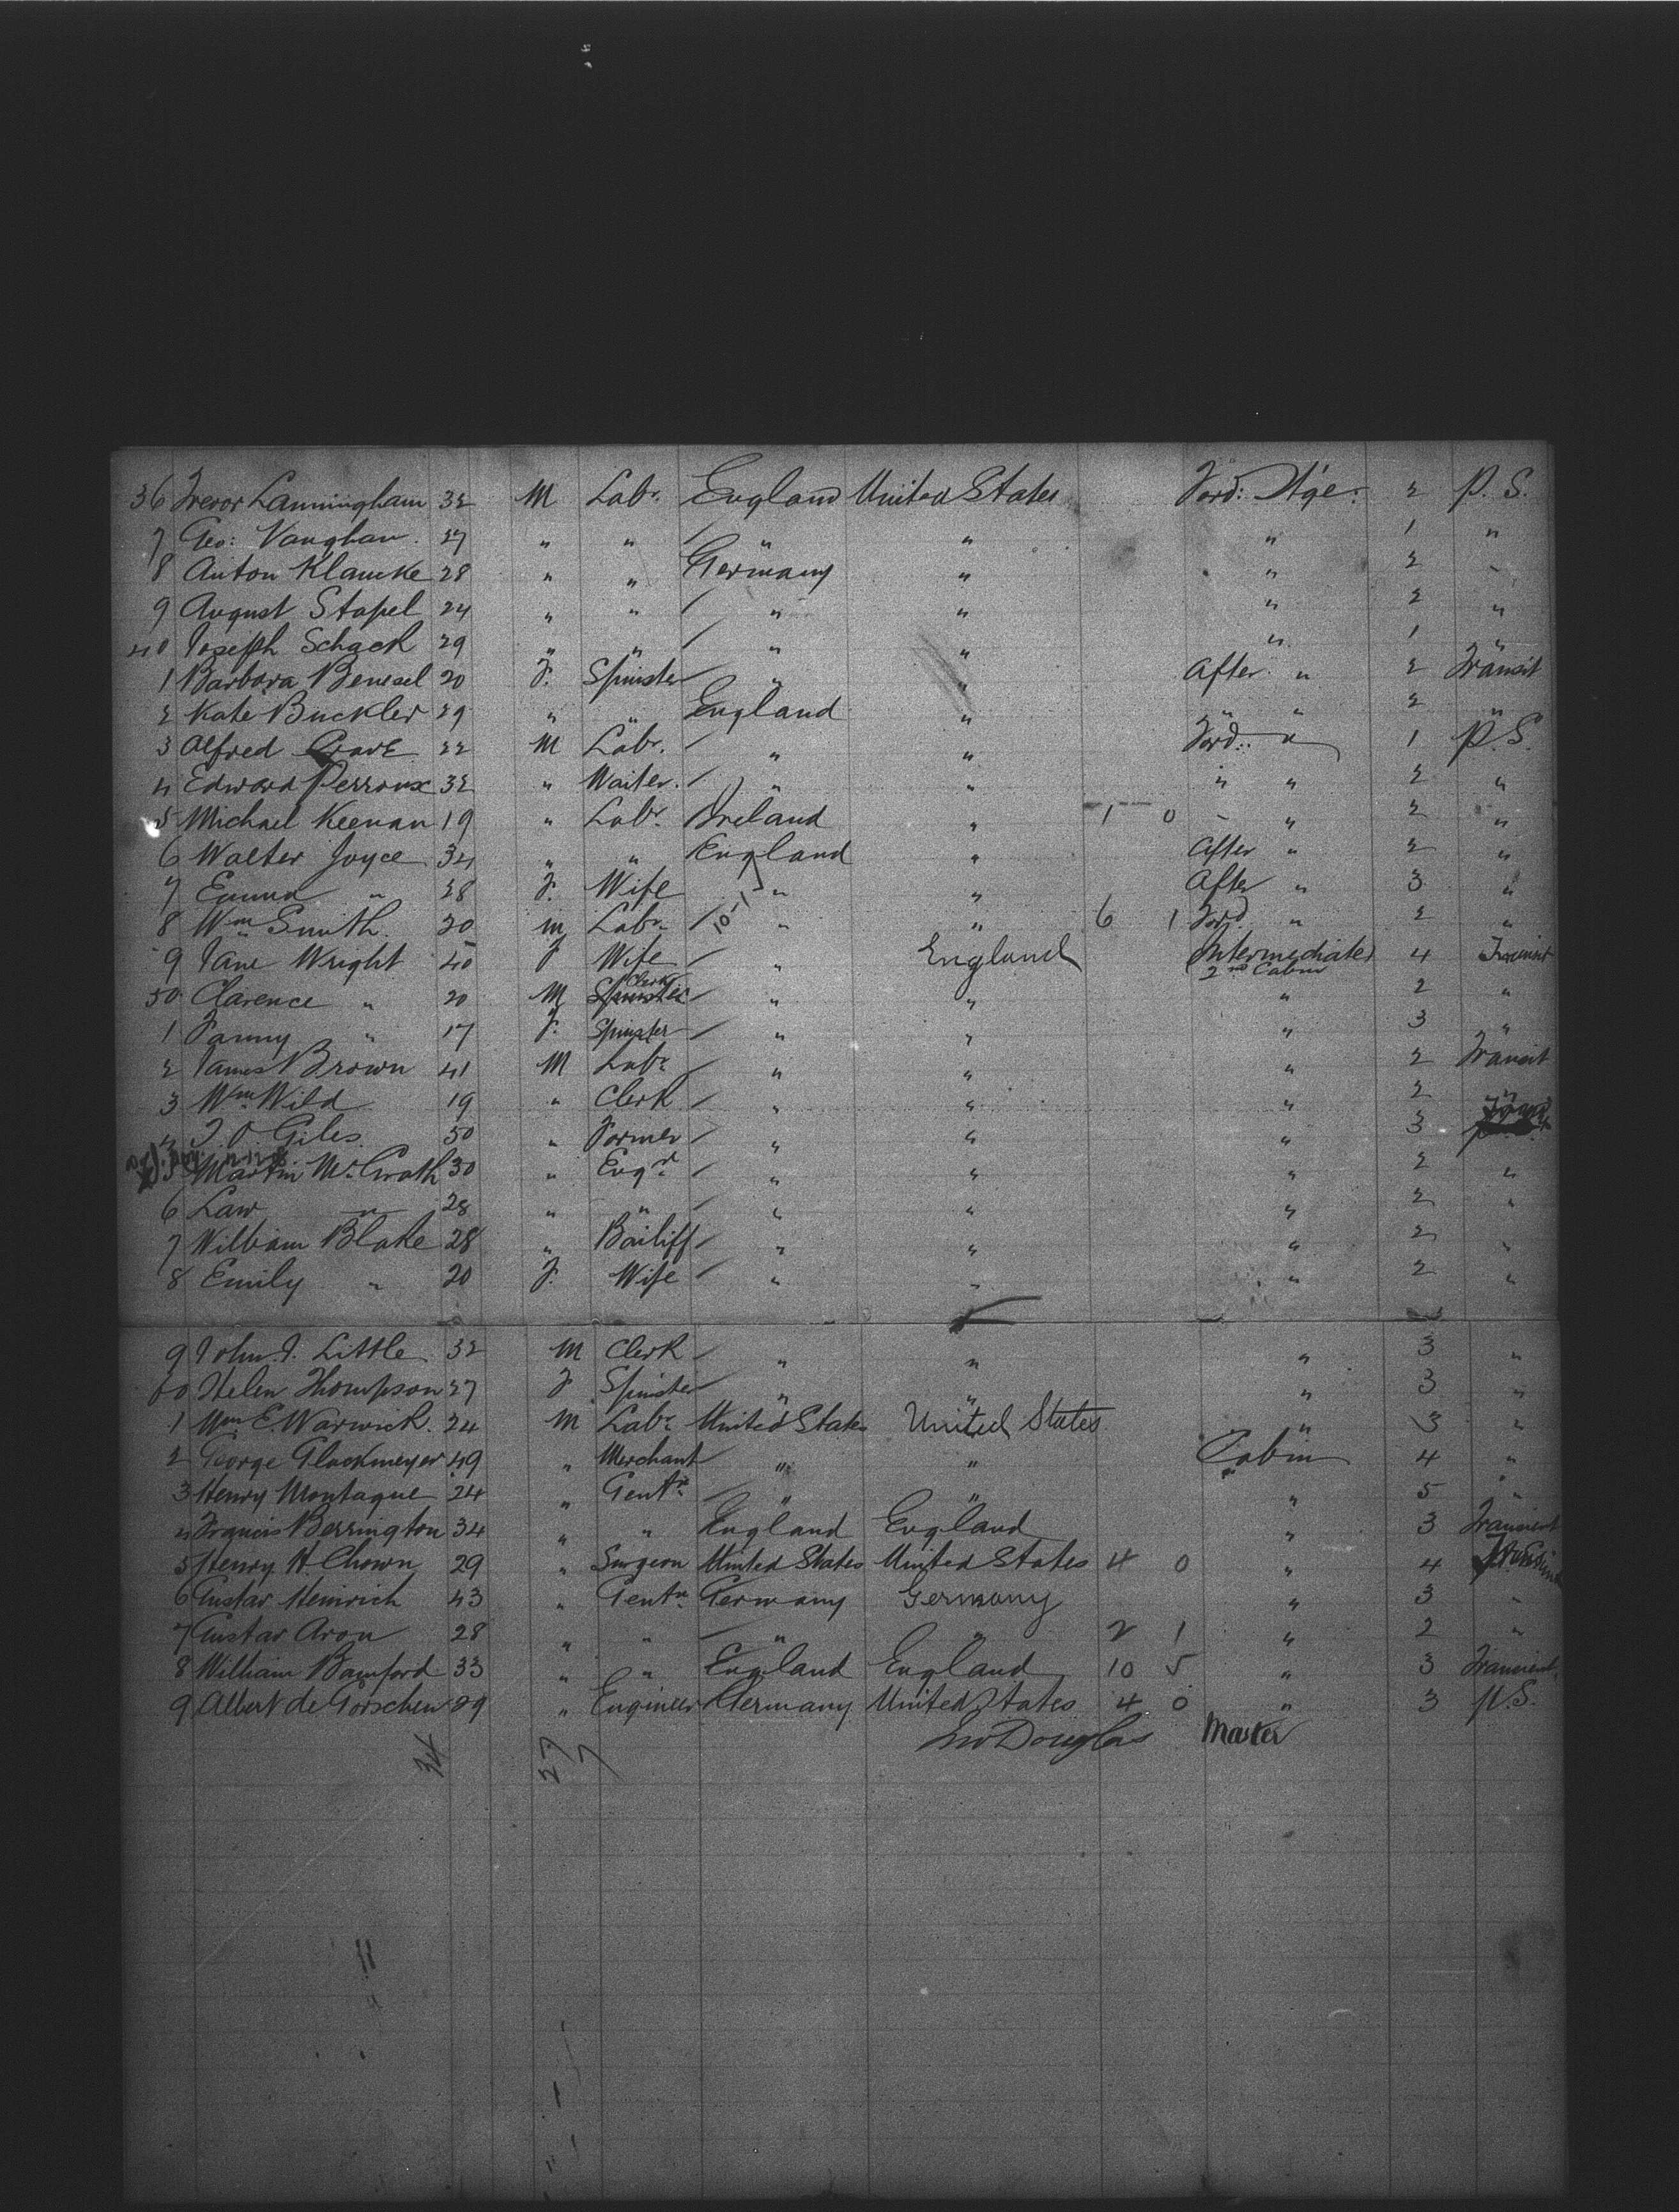 36 Trevor Lanningham 32 M Labr. England United States Ford: Stge: 2 P. S.
7 Geo: Vaughan. 27 " " " " " 1 "
8 Anton Klamcke 28 " " Germany " " 2 "
9 August Stapel 24 " " " " " 2 "
40 Joseph Schack 29 " " " " " 1 "
1 Barbara Benesel 20 F. Spinster " " After " 2 Transit
2 Kate Buckler 29 " " England " " " 2 "
3 Alfred Grave 22 M Labr. " " Ford: " 1 P. S.
4 Edward Perroux 32 " Waiter. " " " " 2 "
5 Michael Keenan 19 " Labr. Ireland " 1 0 " " 2 "
6 Walter Joyce 34 " " England " After " 2 "
7 Emma " 28 F. Wife " " After " 3 "
8 Wm Smith. 20 M Labr. " " 6 1 Ford " 2 "
9 Jane Wright 40 F Wife " England Intermediate 2nd Cabin 4 Transient
50 Clarence " 20 M Clerk " " " 2 "
1 Fanny " 17 F. Spinster " " " 3 "
2 James Brown 41 M Labr. " " " 2 Transit
3 Wm Wild 19 " Clerk " " " 2
4 J. O. Giles. 50 " Farmer " " " 3
5 Martin McGrath 30 " Engr. " " " 2 "
6 Law " 28 " " " " " 2 "
7 William Blake 28 " Bailiff " " " 2 "
8 Emily " 20 F. Wife " " " 2 "
9 John J. Little 32 M Clerk " " " 3 "
60 Helen Thompson 27 F Spinster " " " 3 "
1 Wm E. Warwick. 24 M Labr. United States United States " 3 "
2 George Glackmeyer 49 " Merchant " " Cabin 4 "
3 Henry Montague 24 " Gentn. " " " 5 "
4 Francis Berrington 34 " " England England " 3 Transient
5 Henry H. Chown 29 " Surgeon United States United States 4 0 " 4
6 Gustav Heinrich 43 " Gentn. Germany Germany " 3 "
7 Gustav Aron 28 " " " " 2 1 " 2 "
8 William Bamford 33 " " England England 10 5 " 3 Transient
9 Albert de Gorschen 29 " Engineer Germany United States 4 0 " 3 P.S.
Jno Douglas Master
27
7